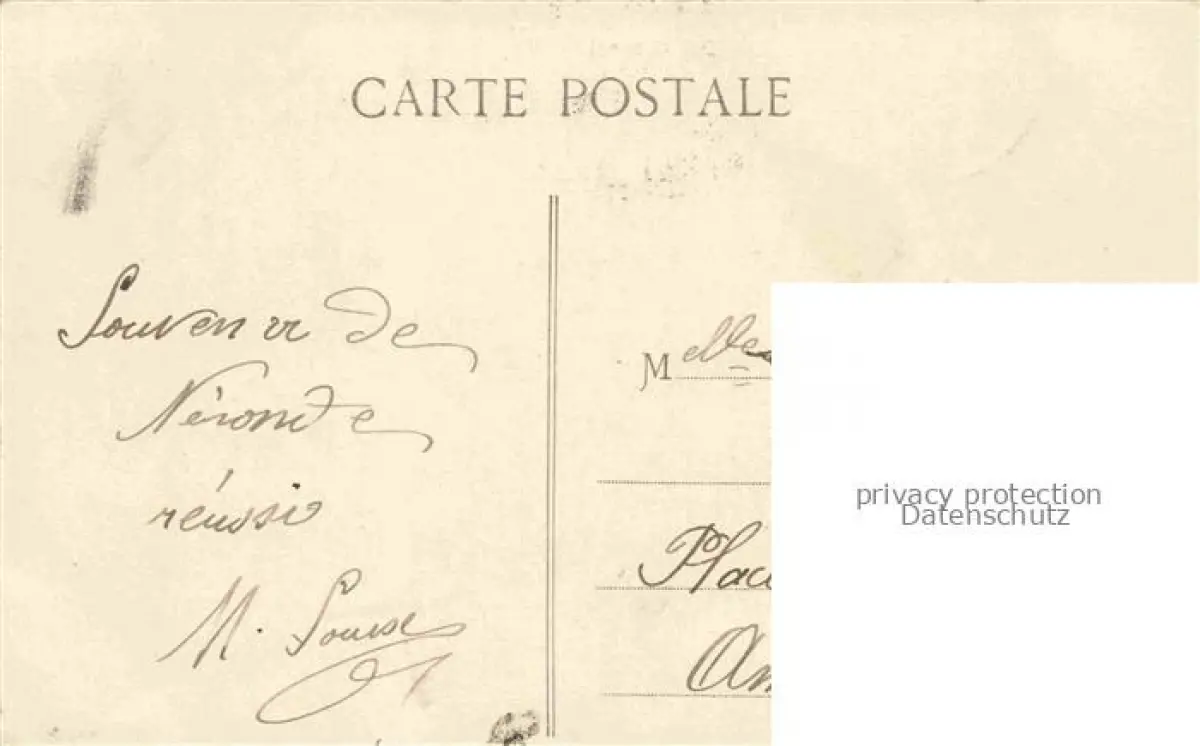 CARTE POSTALE
Souvenir de
Néronde
réussi
M. Louise
Melles
Place
Am
privacy protection
Datenschutz